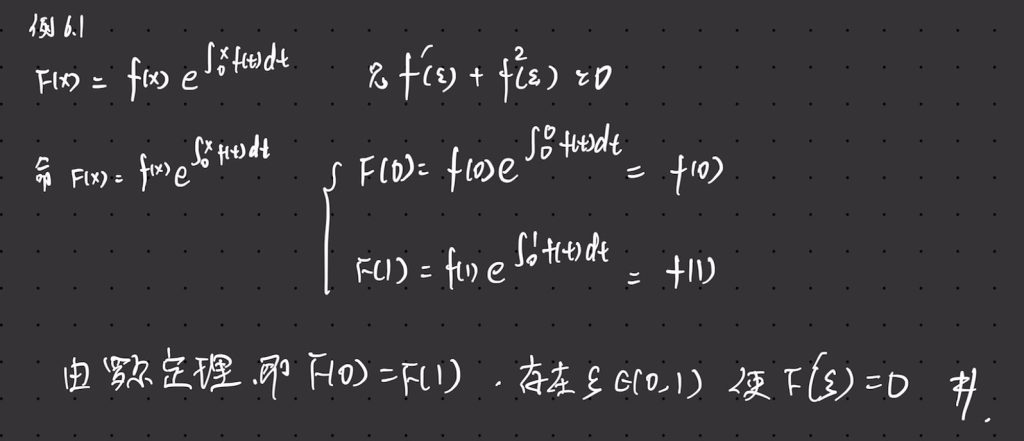 例 6.1
F(x) = f(x) e^{∫_0^x f(t)dt} f'(ξ) + f²(ξ) = 0
命 F(x) = f(x) e^{∫_0^x f(t)dt}
{ F(0) = f(0) e^{∫_0^0 f(t)dt} = f(0)
F(1) = f(1) e^{∫_0^1 f(t)dt} = f(1)
由 罗尔定理. 即 F(0) = F(1). 存在 ξ ∈ (0,1) 使 F'(ξ) = 0 #.